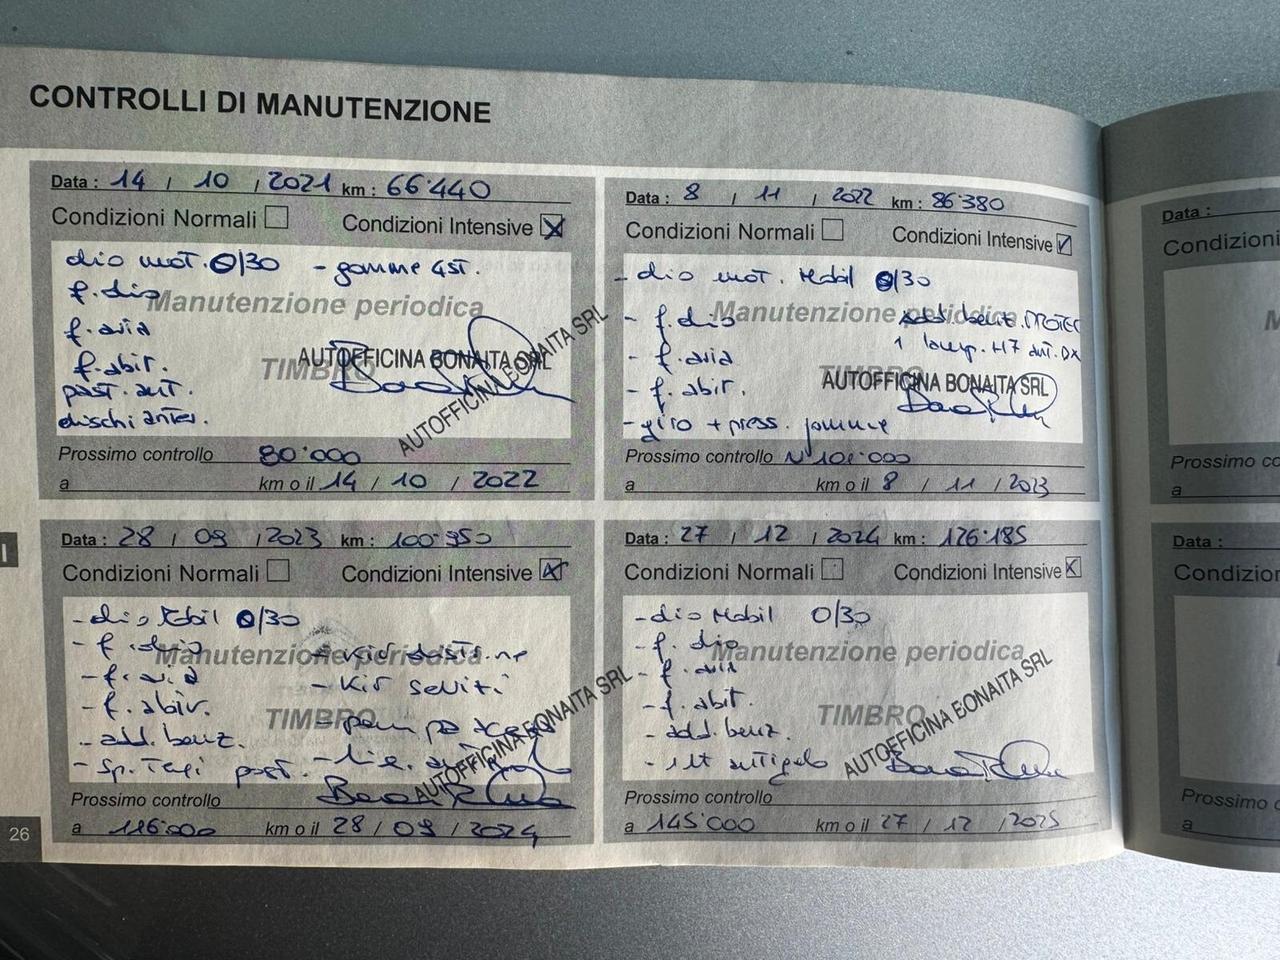 CONTROLLI DI MANUTENZIONE
Data : 14 / 10 / 2021 km : 66'440
Condizioni Normali Condizioni Intensive X
olio mot. 0/30 - gomme 4st.
f. olio
Manutenzione periodica
f. aria
f. abit.
TIMBRO
AUTOFFICINA BONAITA SRL
AUTOFFICINA BONAITA SRL
past. ant.
dischi anter.
Prossimo controllo 80'000
a km o il 14 / 10 / 2022
Data : 8 / 11 / 2022 km : 86'380
Condizioni Normali Condizioni Intensive
- olio mot. Mobil 0/30
- f. olio
Manutenzione periodica
add. benz. PROTEC
- f. aria
1 lamp. H7 ant. DX
TIMBRO
AUTOFFICINA BONAITA SRL
- f. abit.
- giro + press. gomme
Prossimo controllo 101'000
a km o il 8 / 11 / 2023
Data : 28 / 09 / 2023 km : 100'950
Condizioni Normali Condizioni Intensive X
- olio Mobil 0/30
- f. olio
Manutenzione periodica
- Kit distr.ne
- f. aria
- Kit servizi
- f. abit.
TIMBRO
- add. benz.
AUTOFFICINA BONAITA SRL
post.
Prossimo controllo
a 116'000 km o il 28 / 09 / 2024
Data : 27 / 12 / 2024 km : 126'185
Condizioni Normali Condizioni Intensive X
- olio Mobil 0/30
- f. olio
Manutenzione periodica
- f. aria
- f. abit.
TIMBRO
AUTOFFICINA BONAITA SRL
- add. benz.
- 1 lt antigelo
Prossimo controllo
a 145'000 km o il 27 / 12 / 2025
26
Data :
Prossimo
a
Data :
Prossimo
a